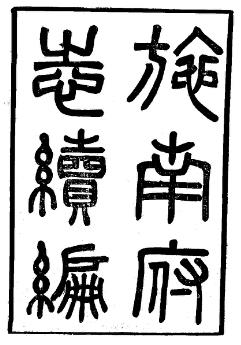 施南府
志續編